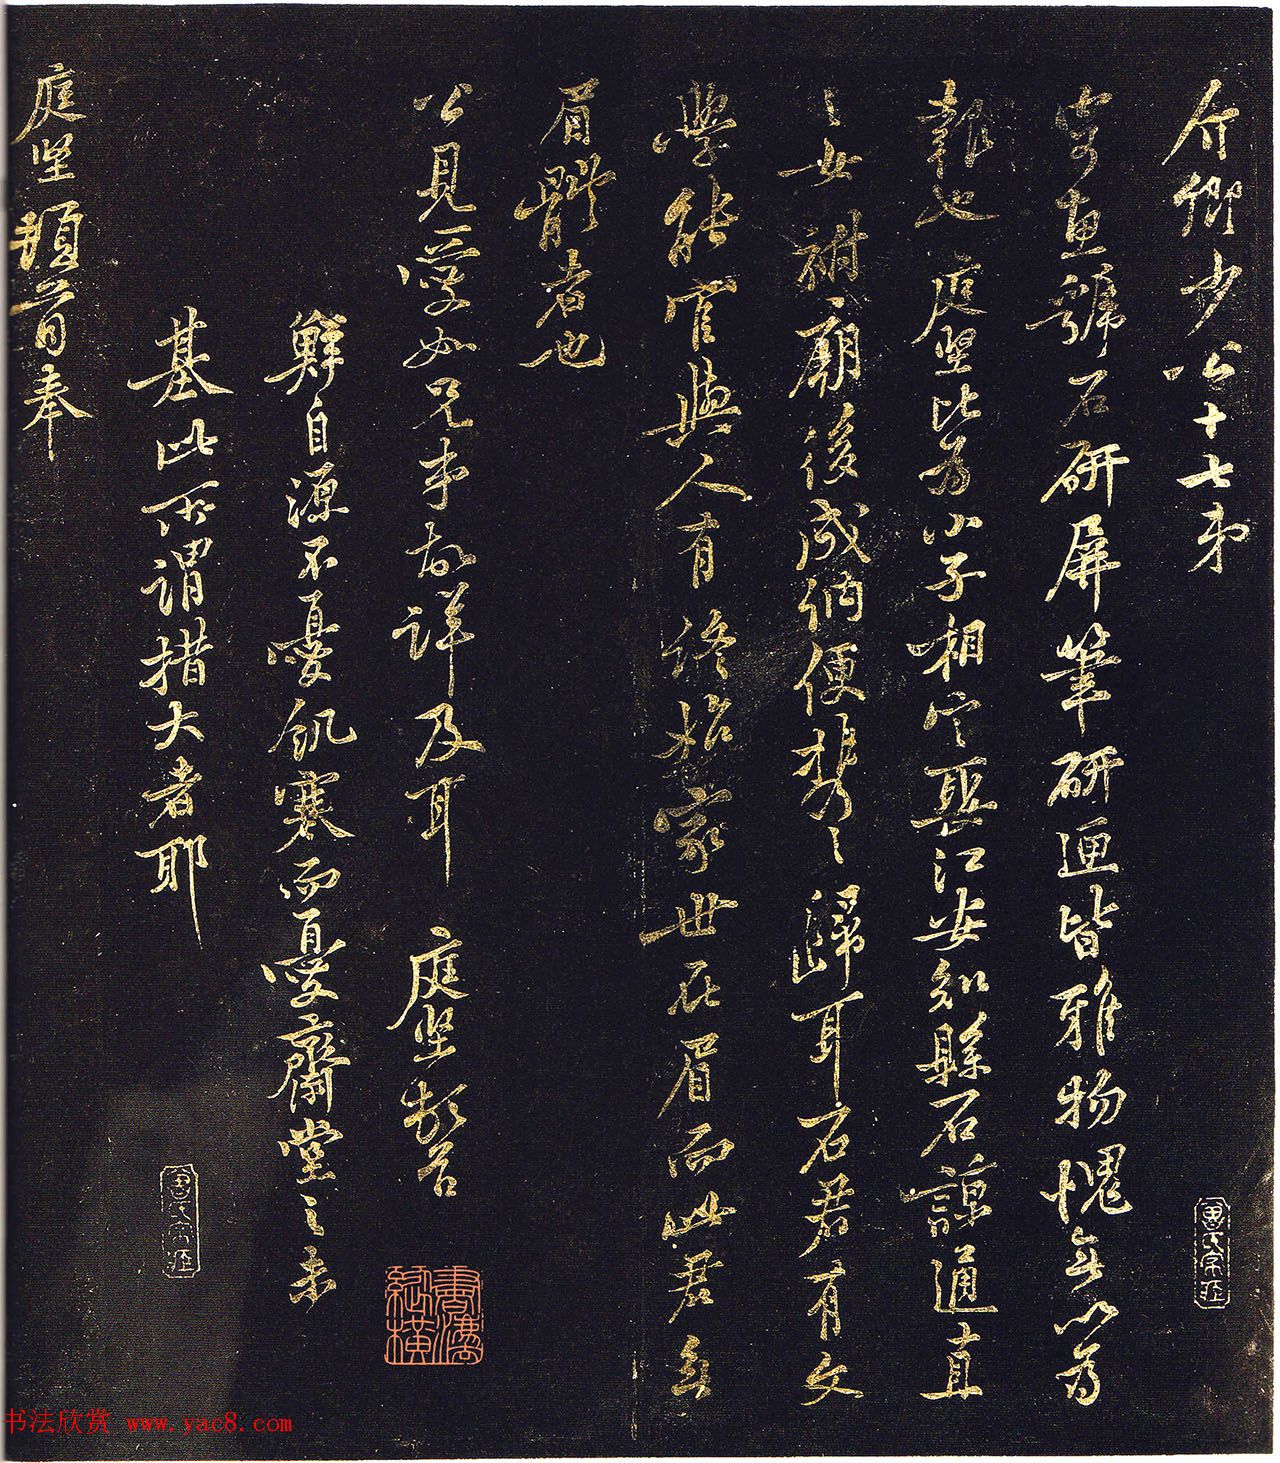 介卿少公十七弟
寄惠號石研屏筆研匣皆雅物愧無以為
報也庭堅比為小子相定聘江安知縣石諒通直
之女祔廟後成納便挈之歸耳石君有文
學能官與人有終始家世在眉而此君無
眉體者也
公見愛如兄事故詳及耳 庭堅頓首
鮮自源不憂飢寒而憂齋堂之未
基此所謂措大者耶
庭堅頓首奉
書法欣赏 www.yac8.com